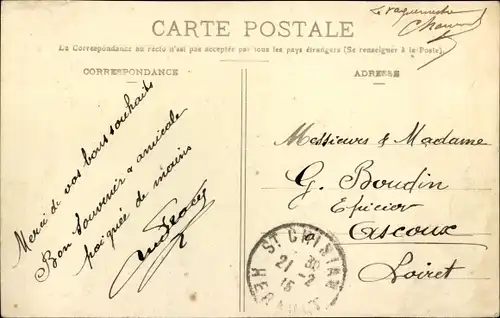 CARTE POSTALE
La Correspondance au recto n'est pas acceptée par tous les pays étrangers (Se renseigner à la Poste)
CORRESPONDANCE
ADRESSE
Merci de vos bons souhaits
Bon Souvenir & amicale
poignée de mains
Messieurs & Madame
G. Boudin
Epicier
Ascoux
Loiret
ST CHINIAN
21 -2
15
HERAULT